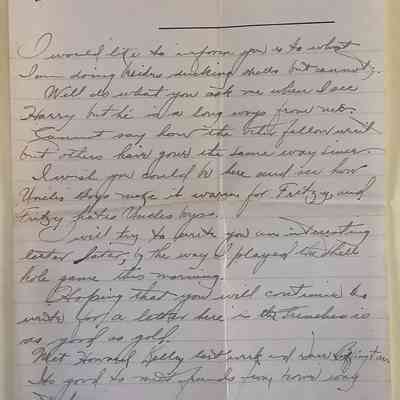 I would like to inform you as to what
I am doing besides ducking shells but cannot.
Will do what you ask me when I see
Harry but he is a long ways from me.
Cannot say how the other fellow went
but others have gone the same way since.
I wish you could be here and see how
Uncles boys make it warm for Fritzy, and
Fritzy hates Uncles boys.
I will try to write you an interesting
letter later, by the way I played the shell
hole game this morning.
Hoping that you will continue to
write for a letter here in the trenches is
as good as gold.
Met Howard Kelly last week and
Its good to meet friends from home way